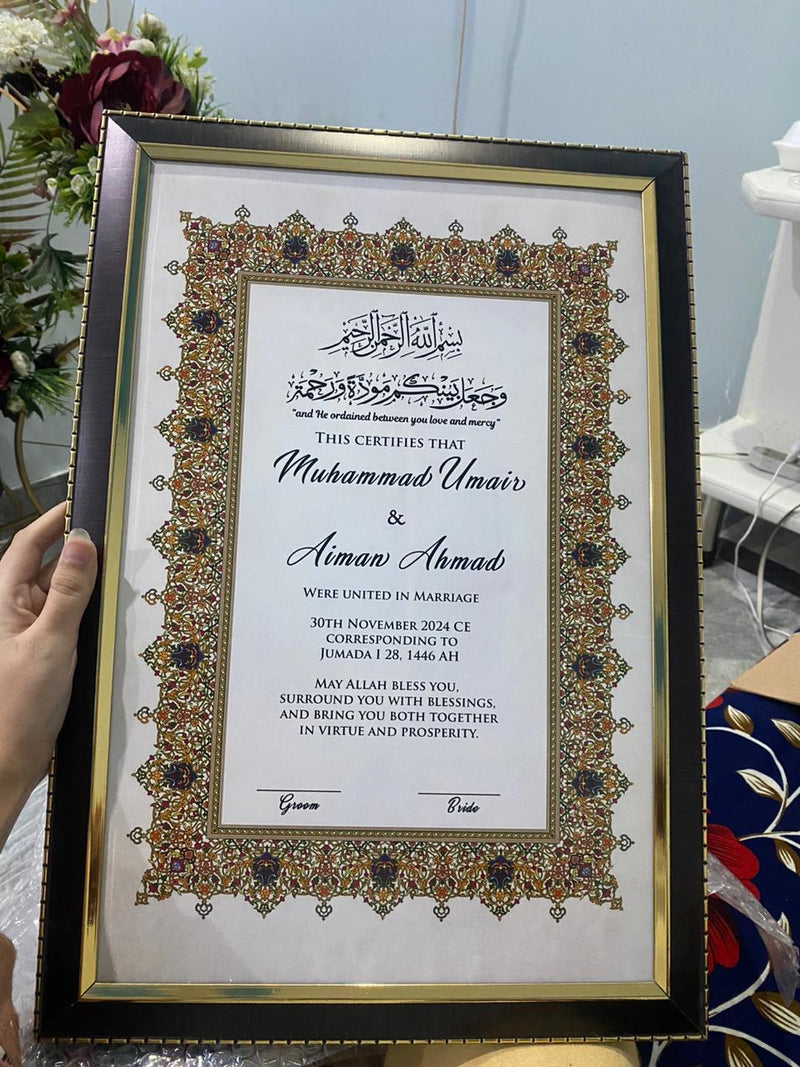 بسم الله الرحمن الرحيم
وجعل بينكم مودة ورحمة
"and He ordained between you love and mercy"
THIS CERTIFIES THAT
Muhammad Umair
&
Aiman Ahmad
WERE UNITED IN MARRIAGE
30TH NOVEMBER 2024 CE
CORRESPONDING TO
JUMADA I 28, 1446 AH
MAY ALLAH BLESS YOU,
SURROUND YOU WITH BLESSINGS,
AND BRING YOU BOTH TOGETHER
IN VIRTUE AND PROSPERITY.
Groom
Bride